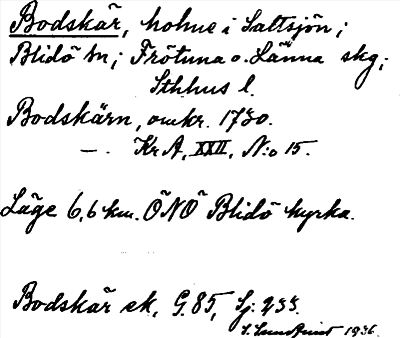 Bodskär, holme i Saltsjön;
Blidö sn; Frötuna o. Länna skg;
Sthlms l.
Bodskärn, omkr. 1730.
—. Kr A, XXII, N:o 15.
Läge 6,6 km. ÖNÖ Blidö kyrka.
Bodskär ek, G. 85, Sj: 233.
S. Lundquist 1936.